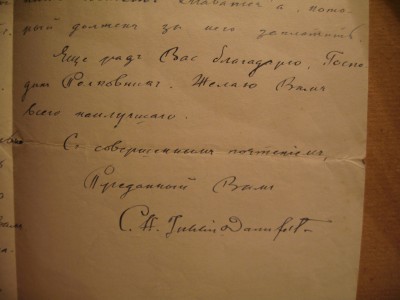 кото-
рый должен за него заплатить
Еще разъ Вас благодарю, Госпо-
дин Полковникъ. Желаю Вамъ
всего наилучшаго.
С совершенным почтеніем,
Преданный Вамъ
С. А.